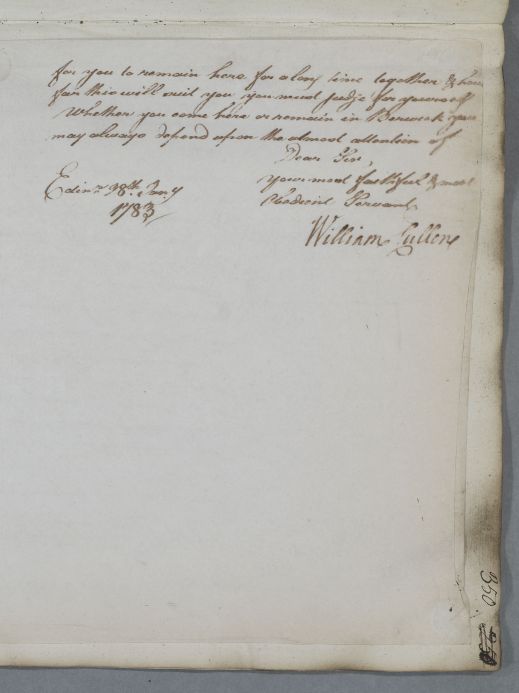 for you to remain here for a long time together & how
far this will suit you you must judge for yourself
Whether you come here or remain in Berwick you
may always depend upon the utmost attention of
Dear Sir,
your most faithful & most
Obedient Servant
Edinr. 28th. Jany
1783
William Cullen
350